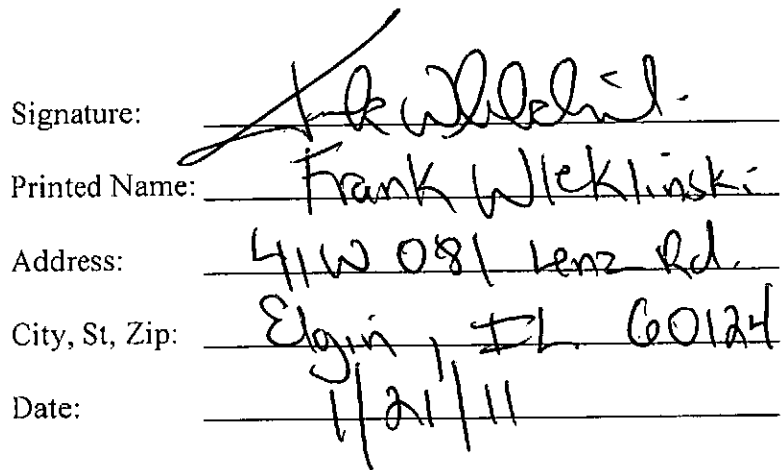 Signature:
Printed Name: Frank Wleklinski
Address: 41W 081 Lenz Rd.
City, St, Zip: Elgin, IL. 60124
Date: 1/21/11